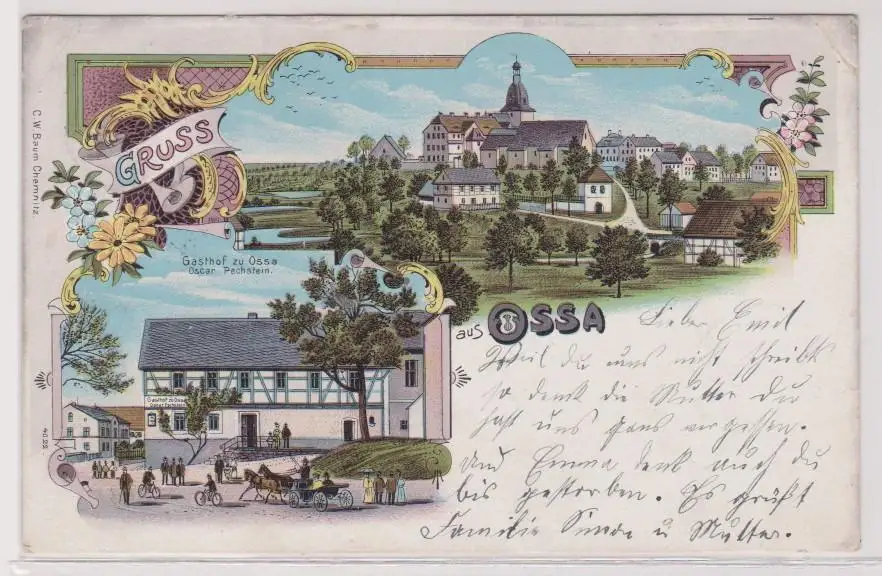 GRUSS
aus OSSA
C. W. Baum Chemnitz.
Gasthof zu Ossa
Oscar Pechstein.
Gasthof zu Ossa
Oscar Pechstein
4022
Lieber Emil
Weil du uns nicht schreibst
so denk die Mutter Du
hast uns ganz vergessen.
Und Emma denk auch du
bis gestorben. Es grüßt
Familie Simon u Mutter.